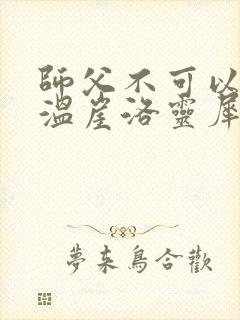 師父不可以
溫崖洛靈犀
夢來鳥合歡